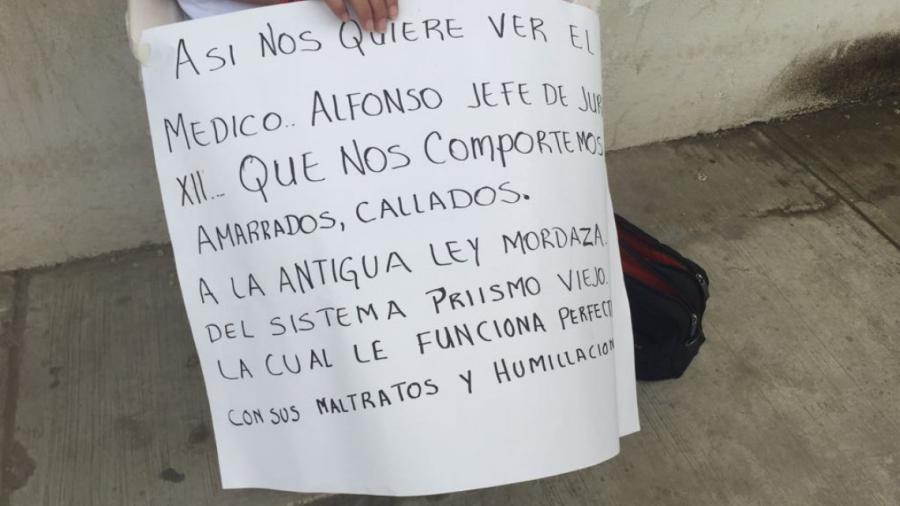 ASI NOS QUIERE VER EL
MEDICO.. ALFONSO JEFE DE
XII... QUE NOS COMPORTEMOS
AMARRADOS, CALLADOS.
A LA ANTIGUA LEY MORDAZA.
DEL SISTEMA PRIISMO VIEJO.
LA CUAL LE FUNCIONA
CON SUS MALTRATOS Y